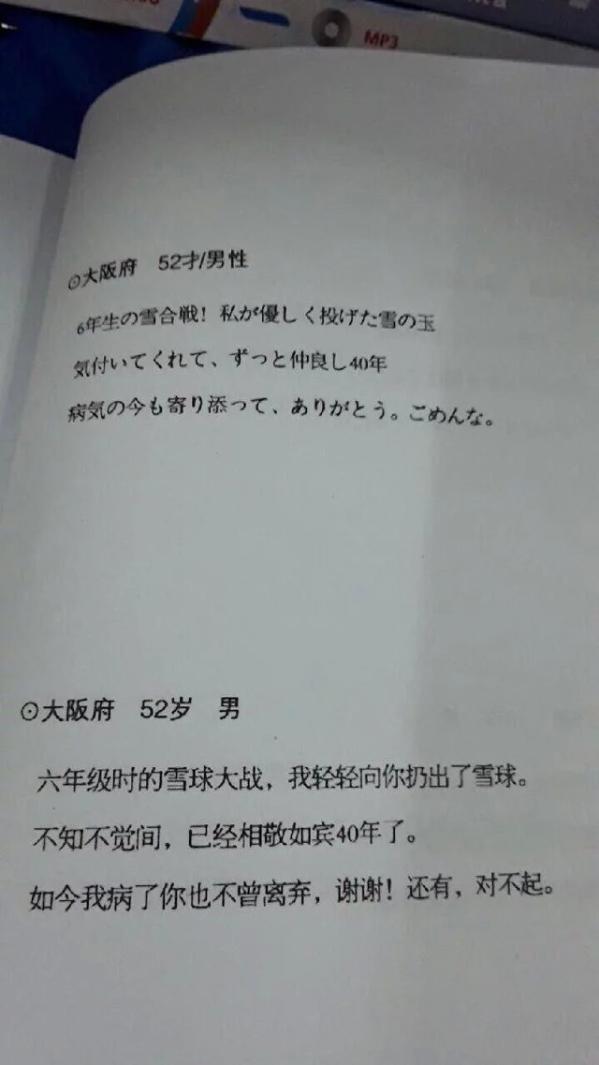 MP3
⊙大阪府 52才/男性
6年生の雪合戦！私が優しく投げた雪の玉
気付いてくれて、ずっと仲良し40年
病気の今も寄り添って、ありがとう。ごめんな。
⊙大阪府 52岁 男
六年级时的雪球大战，我轻轻向你扔出了雪球。
不知不觉间，已经相敬如宾40年了。
如今我病了你也不曾离弃，谢谢！还有，对不起。